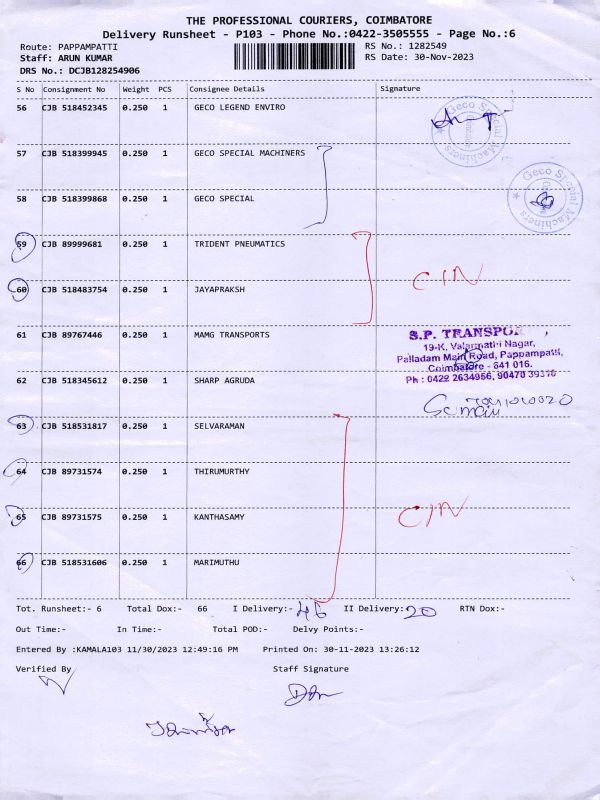 THE PROFESSIONAL COURIERS, COIMBATORE
Delivery Runsheet - P103 - Phone No.:0422-3505555 - Page No.:6
Route: PAPPAMPATTI RS No.: 1282549
Staff: ARUN KUMAR RS Date: 30-Nov-2023
DRS No.: DCJB128254906
S No Consignment No Weight PCS Consignee Details Signature
56 CJB 518452345 0.250 1 GECO LEGEND ENVIRO
Geco Special Machiners
57 CJB 518399945 0.250 1 GECO SPECIAL MACHINERS
58 CJB 518399868 0.250 1 GECO SPECIAL
Geco Special Machiners
59 CJB 89999681 0.250 1 TRIDENT PNEUMATICS
CIN
60 CJB 518483754 0.250 1 JAYAPRAKSH
61 CJB 89767446 0.250 1 MAMG TRANSPORTS
S.P. TRANSPO
19-K, Valarmathi Nagar,
Palladam Main Road, Pappampatti,
Coimbatore - 641 016.
Ph : 0422 2634966, 90470 39376
62 CJB 518345612 0.250 1 SHARP AGRUDA
63 CJB 518531817 0.250 1 SELVARAMAN
64 CJB 89731574 0.250 1 THIRUMURTHY
65 CJB 89731575 0.250 1 KANTHASAMY
CIN
66 CJB 518531606 0.250 1 MARIMUTHU
Tot. Runsheet:- 6 Total Dox:- 66 I Delivery:- 46 II Delivery:- 20 RTN Dox:-
Out Time:- In Time:- Total POD:- Delvy Points:-
Entered By :KAMALA103 11/30/2023 12:49:16 PM Printed On: 30-11-2023 13:26:12
Verified By Staff Signature